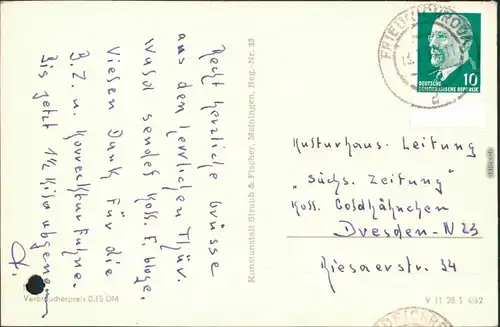 Recht herzliche Grüsse
aus dem herrlichen Thür.
Wald sendet Koll. F.
Vielen Dank für die
B.Z. u. Korrekturfahne.
Bis jetzt 1½ Kilo abgenommen
Kunstanstalt Straub & Fischer, Meiningen, Reg.-Nr. 35
Verbraucherpreis 0,15 DM
FRIEDRICHRODA
10
DEUTSCHE
DEMOKRATISCHE REPUBLIK
Kulturhaus-Leitung
„Sächs. Zeitung"
Koll. Goldhähnchen
Dresden-N 23
Riesaerstr. 34
V 11 28 S 4/62